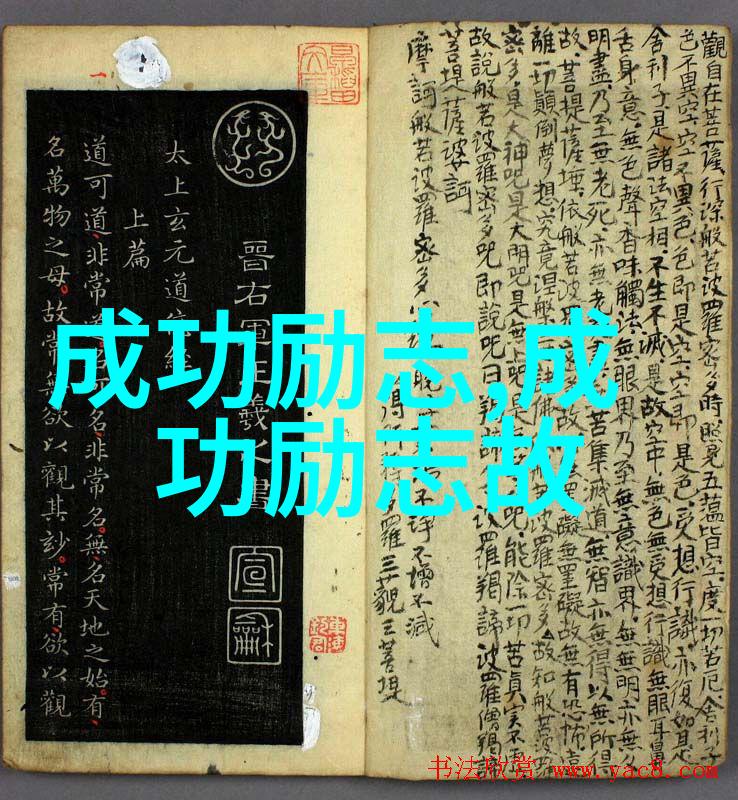 成功励志,成
功励志故
觀自在菩薩行深般若波羅蜜多時照見五蘊皆空度一切苦厄舍利子
色不異空空不異色色即是空空即是色受想行識亦復如是
舍利子是諸法空相不生不滅是故空中無色無受想行識無眼耳鼻
舌身意無色聲香味觸法無眼界乃至無意識界無無明亦無
明盡乃至無老死亦無老苦集滅道無智亦無得以無所得
故菩提薩埵依般若波羅蜜多故罣礙無罣礙故無有恐怖遠
離一切顛倒夢想究竟涅般諸佛般若波羅蜜多故知般若波
密多是大神咒是大明咒是無上咒是咒能除一切苦真實不
故說般若波羅密多咒即說咒曰揭諦波羅揭諦波羅僧揭諦
菩提薩婆訶
摩訶般若波羅密多心
不淨不增不減
得阿多羅三藐三菩提
晉右軍王羲之書
宣
龢
太上玄元道德經
上篇
道可道非常道名可名非常名無名天地之始有
名萬物之母故常無欲以觀其妙常有欲以觀
书法欣赏 www.yac8.com